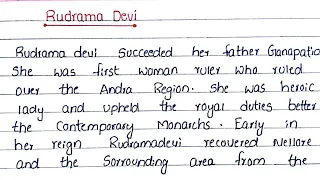 Rudrama Devi
Rudrama devi succeeded her father Ganapati
She was first woman ruler who ruled
over the Andra Region. She was heroic
lady and upheld the royal duties better
the Contemporary Monarchs. Early in
her reign Rudramadevi recovered Nellore
and the Sorrounding area from the